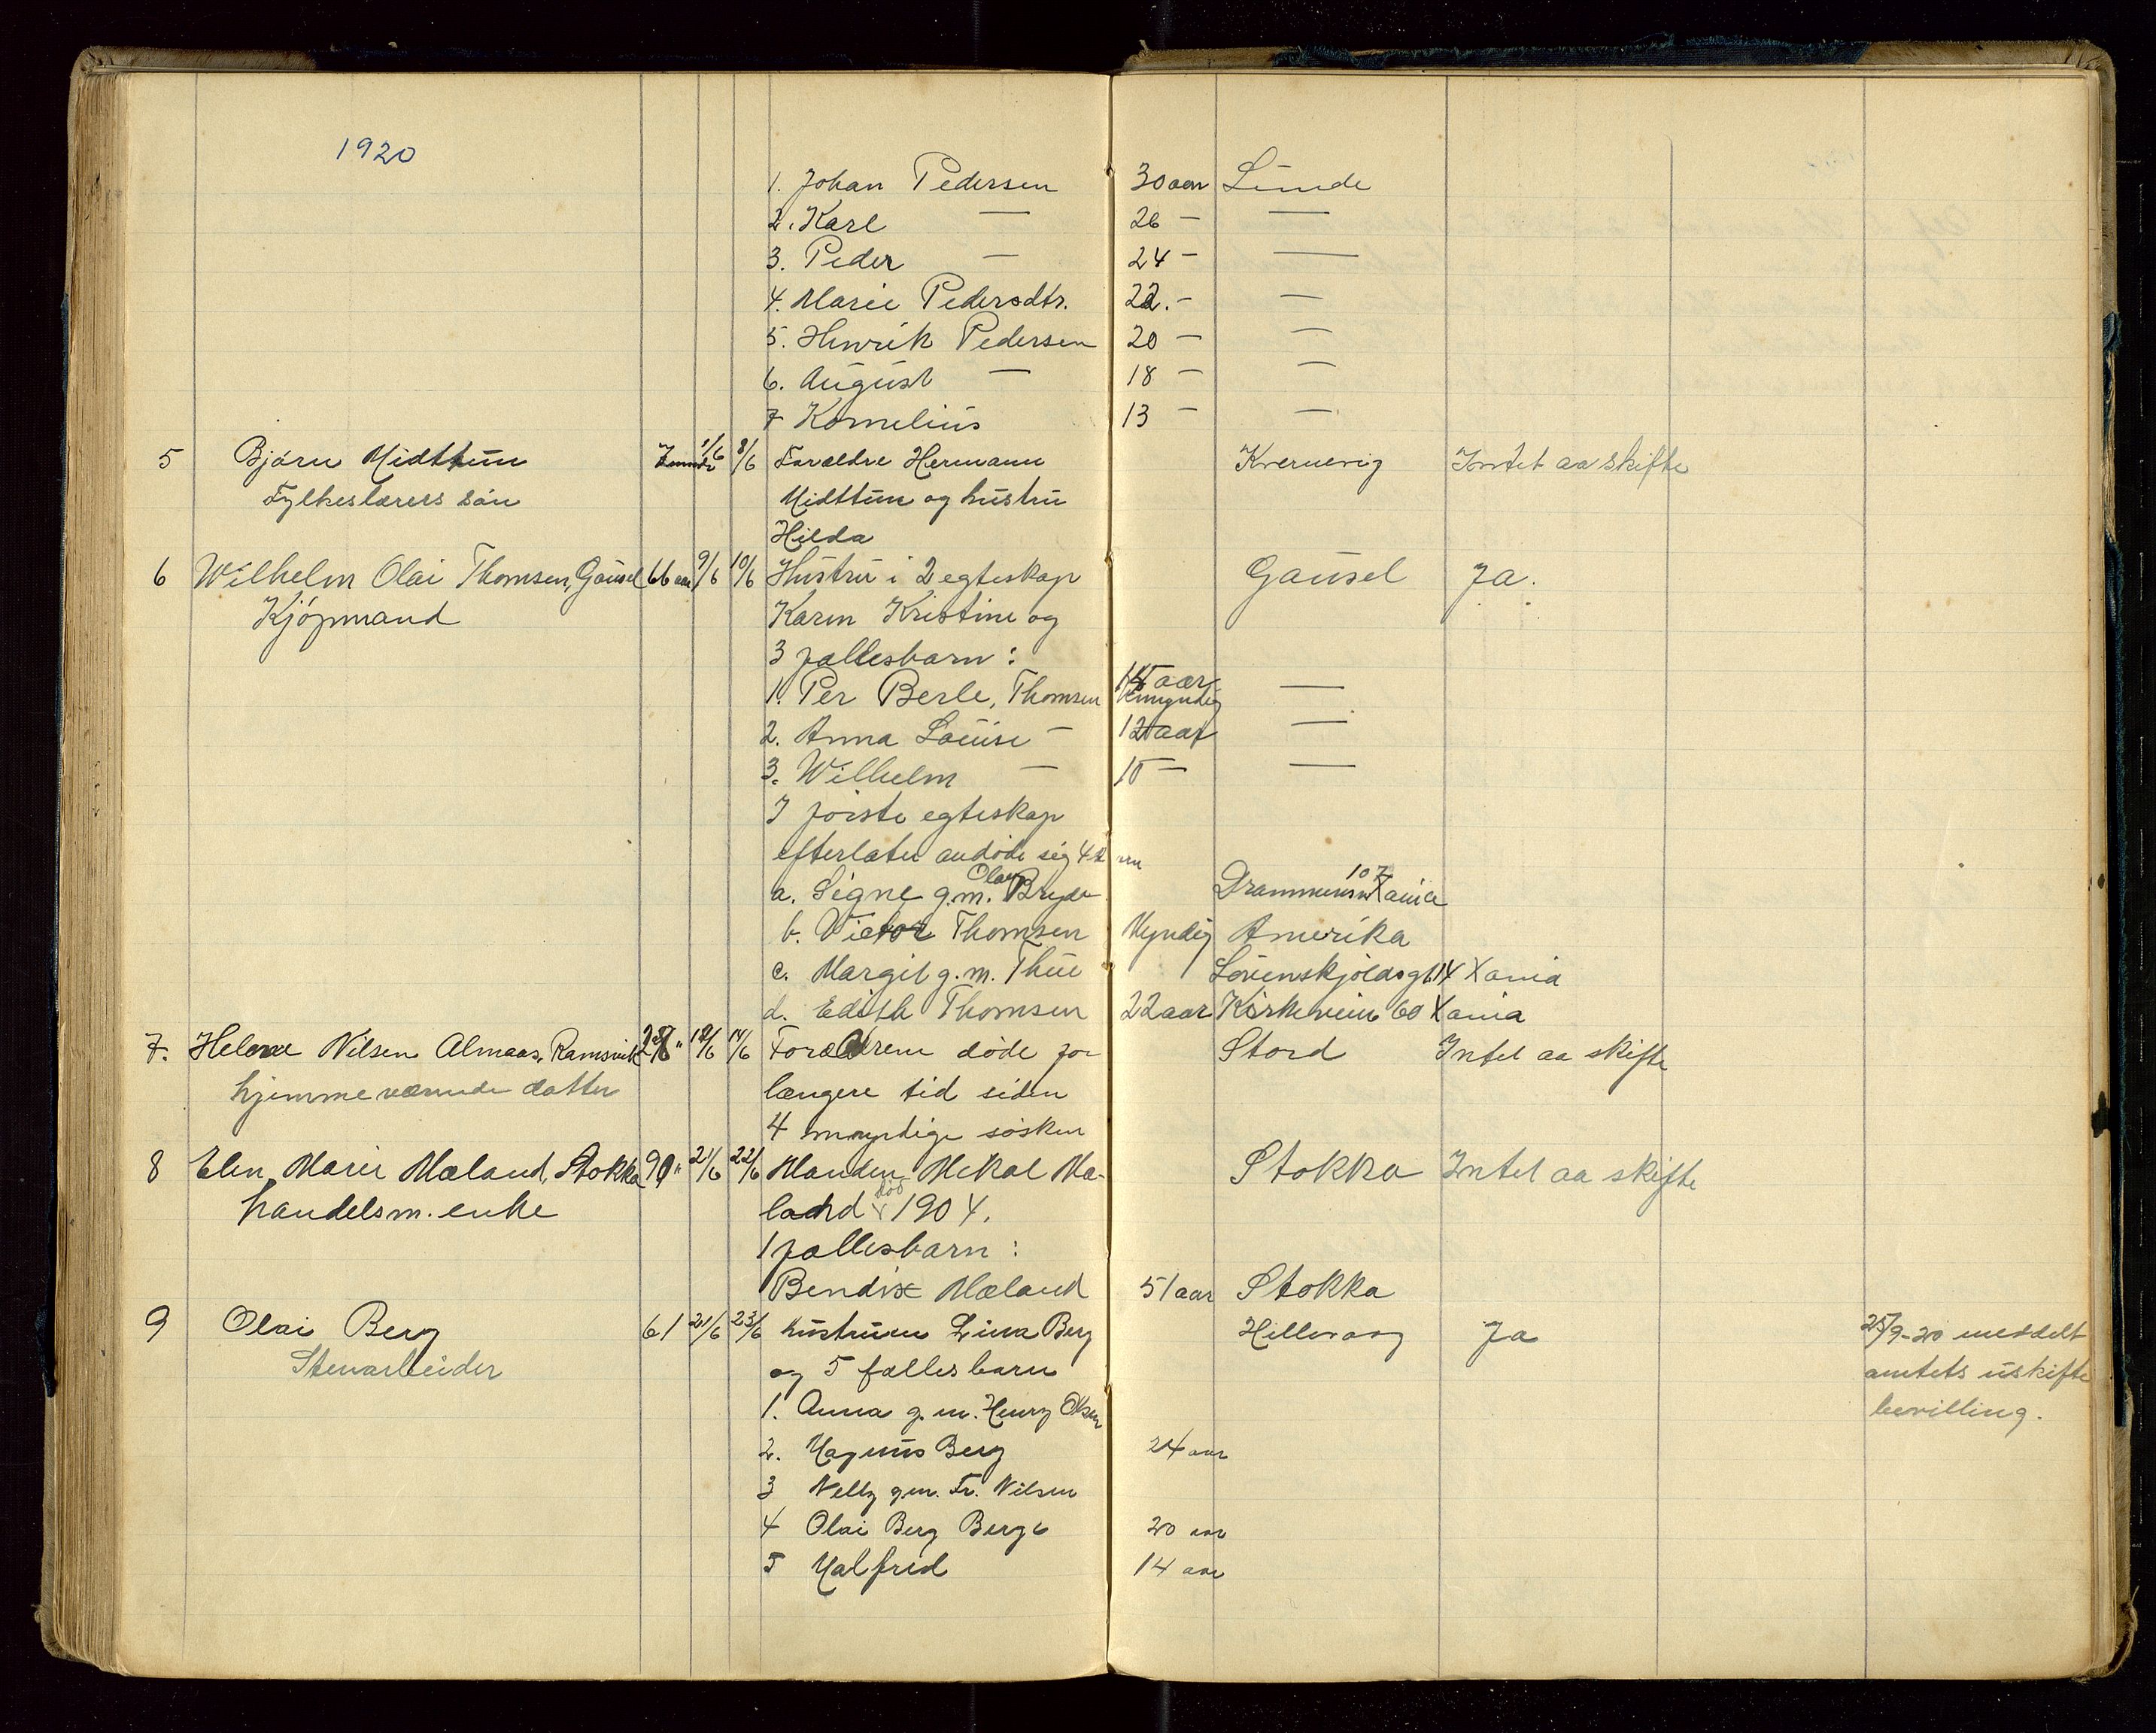 1920
1. Johan Pedersen 30 aar Lunde
2. Karl — 26 — —
3. Peder — 24 — —
4. Marie Pedersdtr. 22. — —
5. Henrik Pedersen 20 — —
6. August — 18 — —
7 Kornelius 13 — —
5 Bjørn Midttun 1/6 8/6 Forældre Hermann Kvernevig Intet aa skifte
Fylkeslærers søn Midttun og hustru
Hilda
6 Wilhelm Olai Thomsen, Gausel 66 aar 9/6 10/6 Hustru i 2 egteskap Gausel Ja.
Kjøpmand Karen Kristine og
3 fællesbarn:
1. Per Berle, Thomsen Umyndig —
2. Anna Louise — 12 aar —
3. Wilhelm — 10 — —
I første egteskap
efterlater avdøde sig 4 barn
a. Signe g.m. Olav Bryde Drammensv 107 Xania
b. Victor Thomsen Myndig Amerika
c. Margit g.m. Thue Løvenskjoldsgt. 14 Xania
d. Edith Thomsen 22 aar Kirkeveien 60 Xania
7. Helene Nilsen Almaas, Ramsvik 12/6 14/6 Forældrene døde for Stord Intet aa skifte
hjemmeværende datter længere tid siden
4 myndige søsken
8 Elen Marie Mæland, Stokka 90 " 21/6 22/6 Manden Mikal Mæ- Stokka Intet aa skifte
handelsm. enke land død 1904.
1 fællesbarn:
Bendix Mæland 51 aar Stokka
9 Olai Berg 61 21/6 23/6 hustruen Lina Berg Hillevaag Ja 25/9-20 meddelt
Stenarbeider og 5 fællesbarn amtets uskifte
1. Anna g.m. Henry Olsen bevilling.
2. Magnus Berg 24 aar
3 Nelly g.m. Fr. Nilsen
4 Olai Berg Berge 20 aar
5 Malfred 14 aar